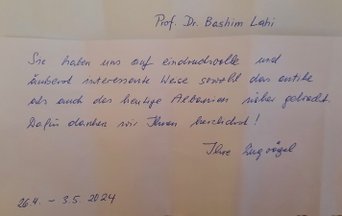 Prof. Dr. Bashim Lahi
Sie haben uns auf eindrucksvolle und
äußerst interessante Weise sowohl das antike
als auch das heutige Albanien näher gebracht.
Dafür danken wir Ihnen herzlichst!
Ihre Zugvögel
26.4. – 3.5.2024